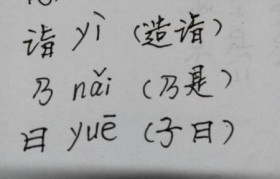 诣 yì (造诣)
乃 nǎi (乃是)
曰 yuē (子曰)